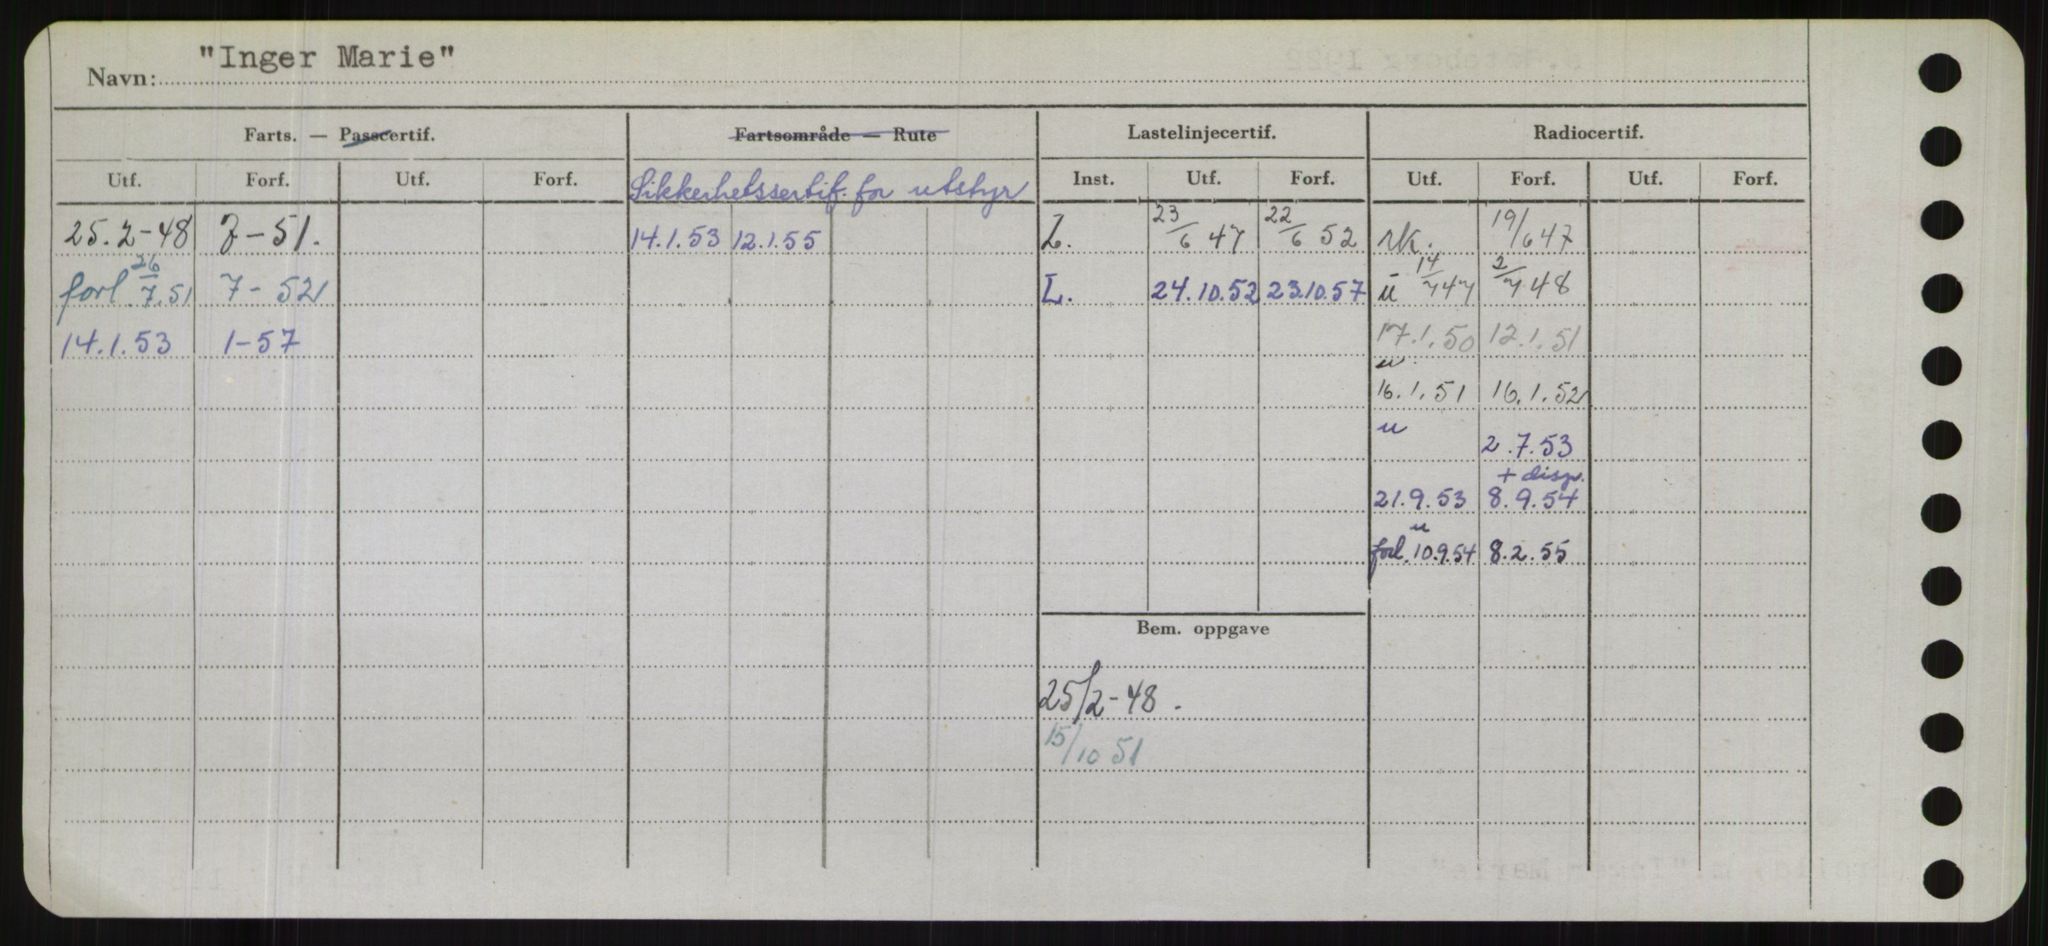 Navn: "Inger Marie"
Farts. — Passcertif. Fartsområde — Rute Lastelinjecertif. Radiocertif.
Utf. Forf. Utf. Forf. Sikkerhetssertif. for utstyr Inst. Utf. Forf. Utf. Forf. Utf. Forf.
25.2-48 7-51. 14.1.53 12.1.55 L. 23/6 47 22/6 52 rk. 19/6 47
forl. 26/7.51 7-52 L. 24.10.52 23.10.57 u 14/7 47 2/7 48
14.1.53 1-57 17.1.50 12.1.51
u
16.1.51 16.1.52
u
2.7.53
+ disp.
21.9.53 8.9.54
u
forl. 10.9.54 8.2.55
Bem. oppgave
25/2-48.
15/10 51